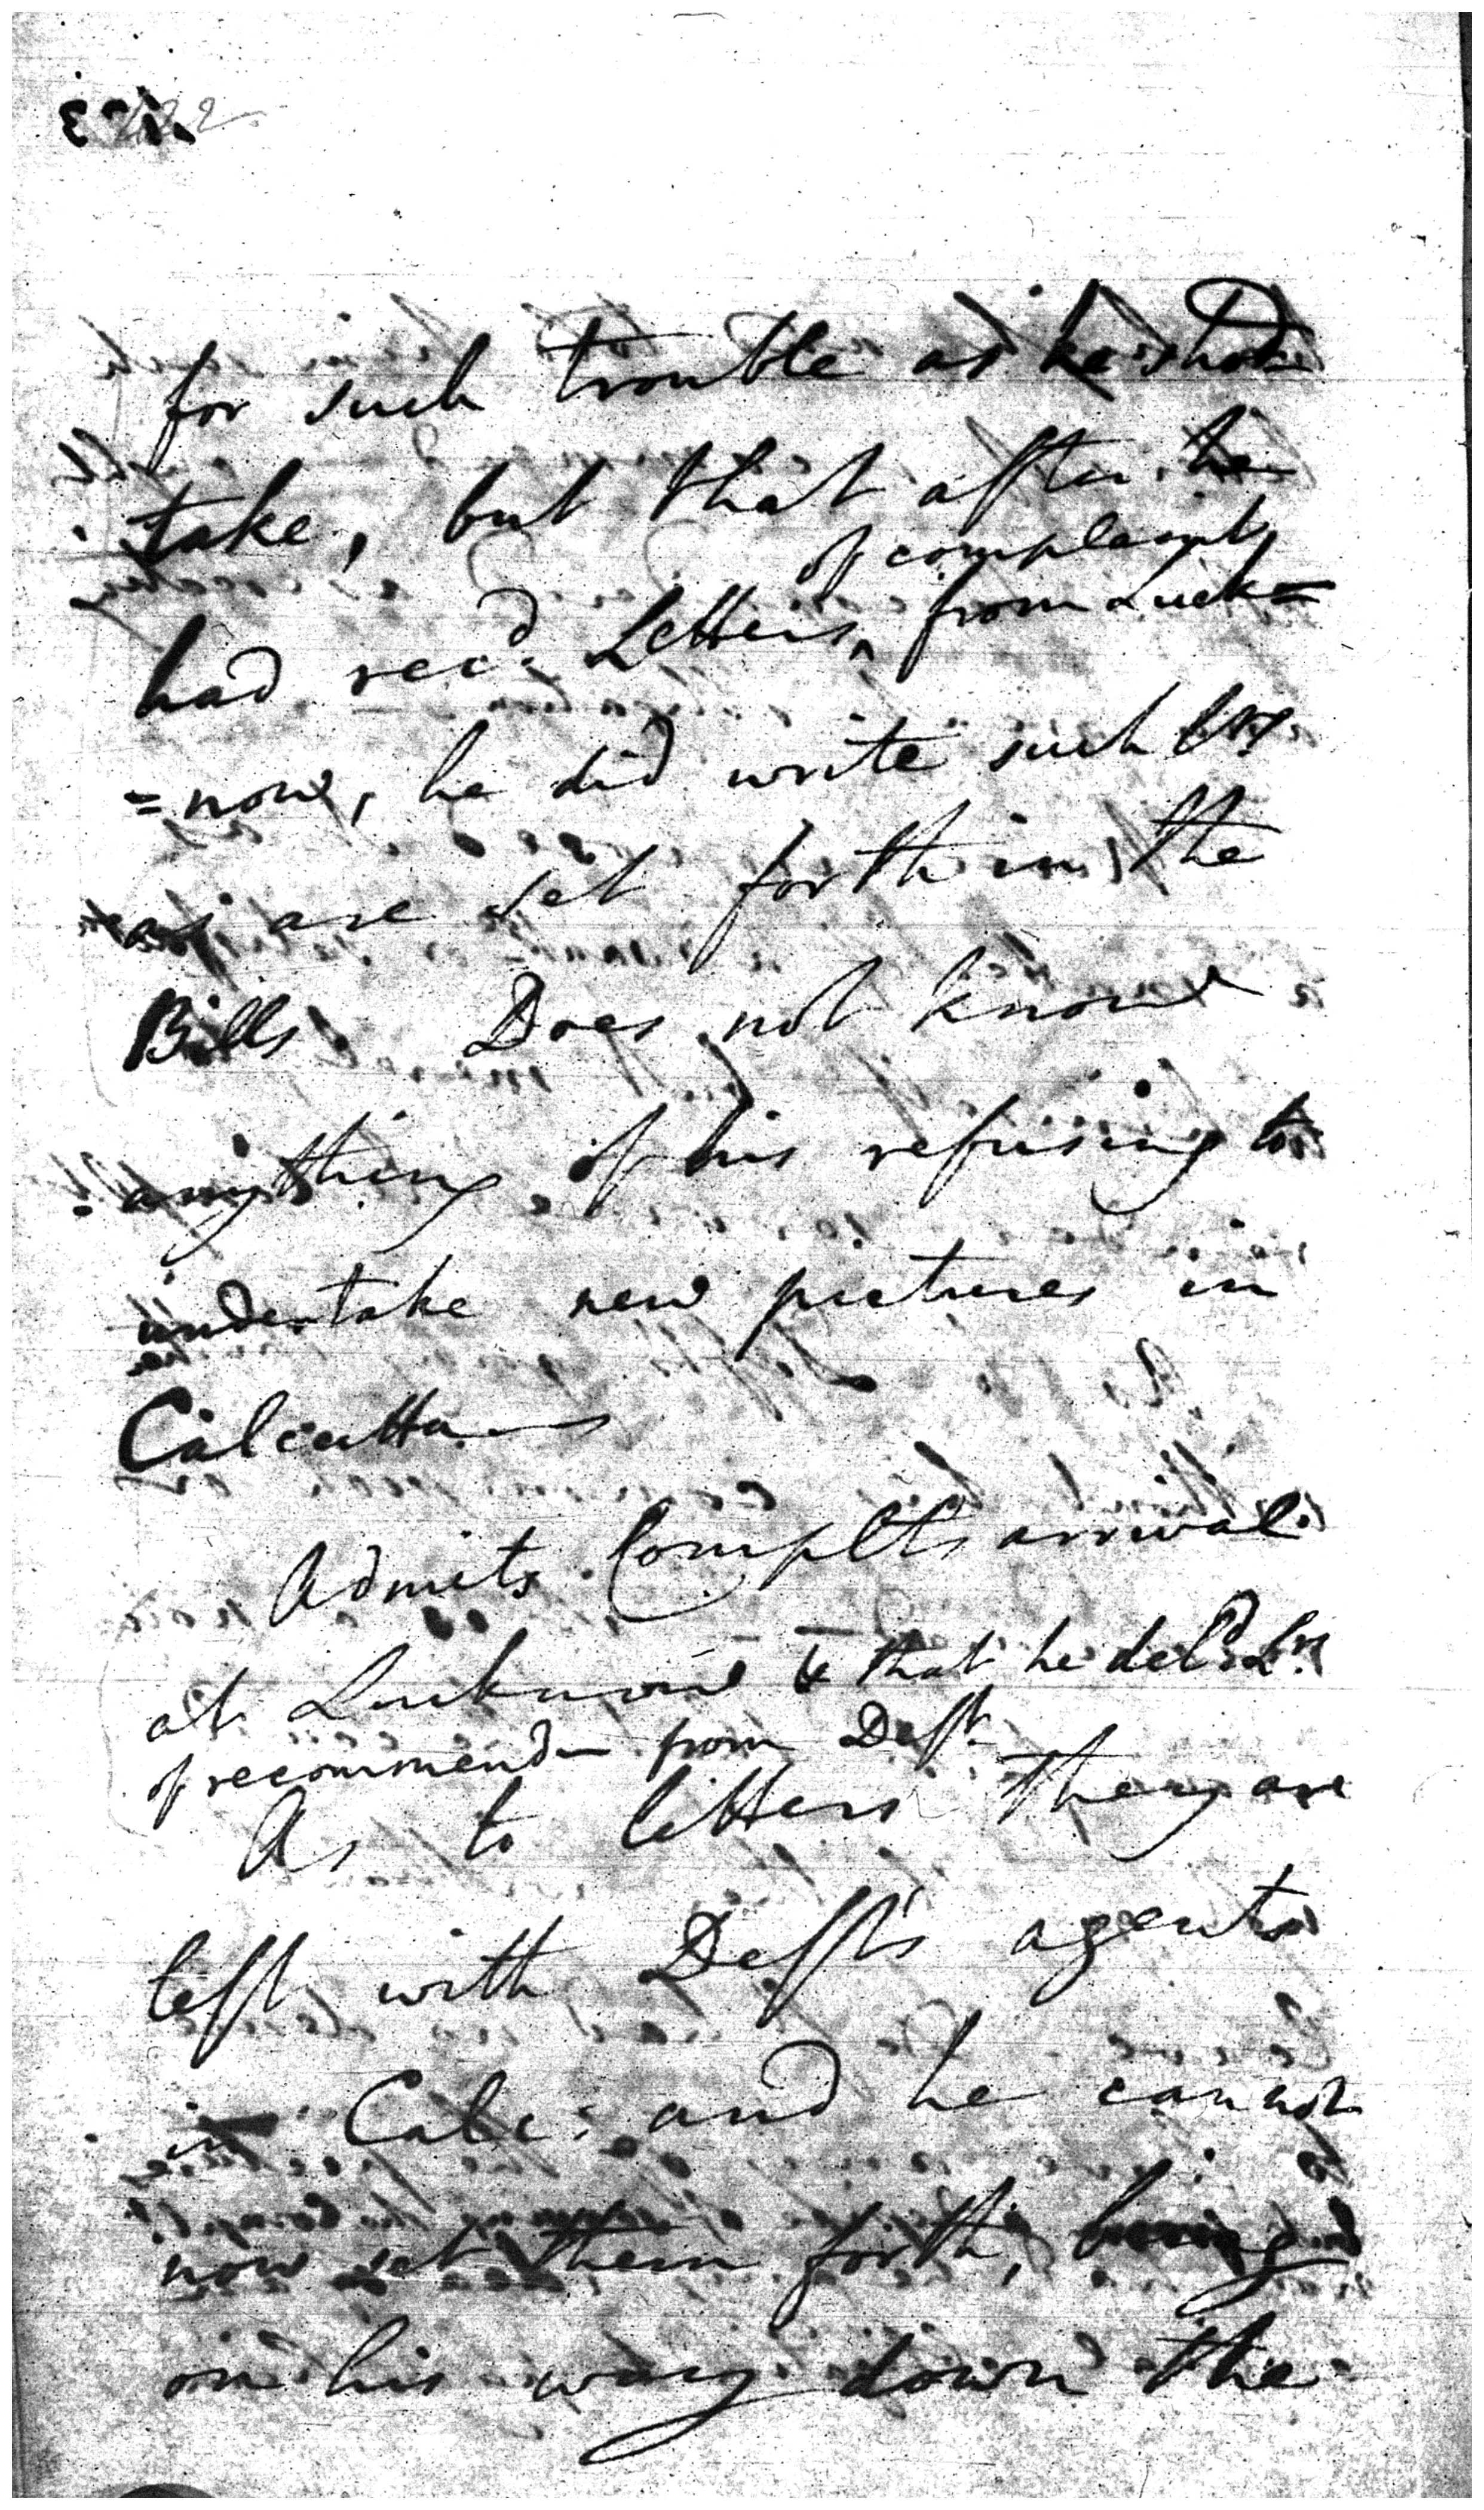 for such trouble as he shod
take, but that after he
of complaint
had recd. Letters ^ from Luck=
=now, he did write such Lrs
as are set forth in the
Bills. Does not know
anything of his refusing to
undertake new pictures in
Calcutta
Admits Complts arrival
at Lucknow & that he deld. Lrs
of recommendn from Deft.
As to letters they are
left with Deft's agents
in Calc: and he cannot
now set them forth, being
on his way down the